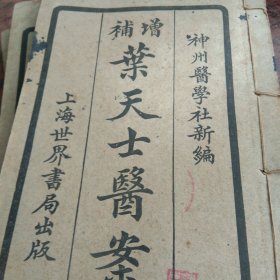 神州醫學社新編
增補
葉天士醫案
上海世界書局出版